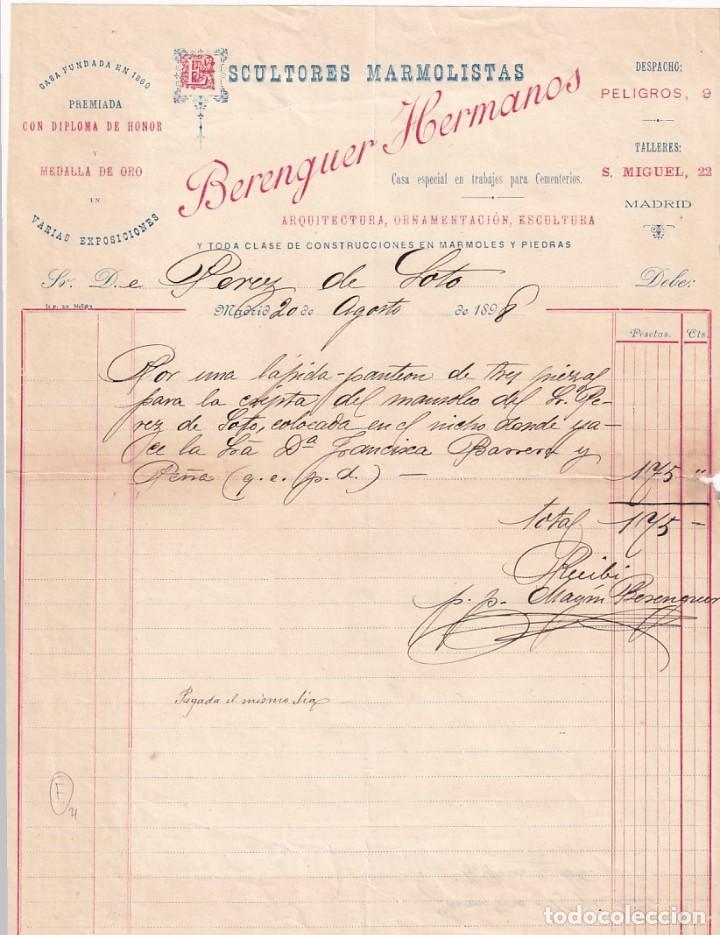 CASA FUNDADA EN 1860
PREMIADA
CON DIPLOMA DE HONOR
Y
MEDALLA DE ORO
EN
VARIAS EXPOSICIONES
ESCULTORES MARMOLISTAS
Berenguer Hermanos
Casa especial en trabajos para Cementerios.
ARQUITECTURA, ORNAMENTACIÓN, ESCULTURA
Y TODA CLASE DE CONSTRUCCIONES EN MARMOLES Y PIEDRAS
DESPACHO:
PELIGROS, 9
TALLERES:
S. MIGUEL, 22
MADRID
Sr. D. Perez de Soto Debe:
Madrid 20 de Agosto de 1898
Pesetas. Cts.
Por una lápida-panteon de tres piezas
para la cripta del mausoleo del Sr. Pe-
rez de Soto, colocada en el nicho donde ya-
ce la Srá Dª Francisca Barrera y
Peña (q. e. p. d.) — 175 "
total 175 —
Recibi
p. p. Magin Berenguer
Pagada el mismo dia
F
todocoleccion